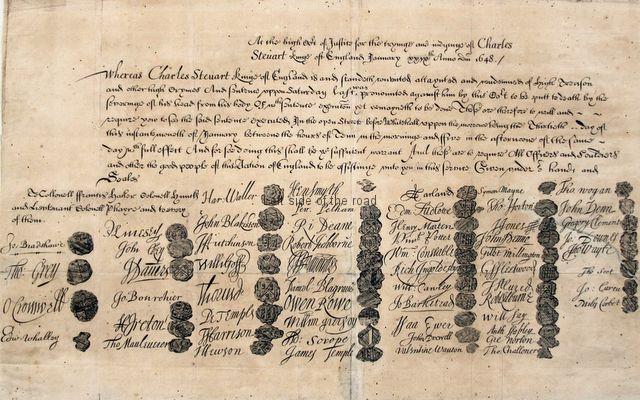 At the high Cort of Justice for the tryinge and iudginge of Charles
Steuart Kinge of England January xxixth Anno Dm 1648./
Whereas Charles Steuart Kinge of England is and standeth convicted attaynted and condemned of High Treason
and other high Crymes And sentence uppon Saturday last was pronounced against him by this Cort to be putt to death by the
severinge of his head from his body Of wch sentence execucon yet remayneth to be done These are therefore to will and
require you to see the said sentence executed In the open Streete before Whitehall uppon the morrowe being the Thirtieth day of
this instante moneth of January betweene the houres of Tenn in the morninge and five in the afternoone of the same
day wth full effect And for soe doing this shall be yor sufficient warrant And these are to require All Officers and Souldiers
and other the good people of this Nation of England to be assistinge unto you in this service Given under or hands and
Seales
To Collonell ffrancis Hacker Colonell Huncks
and Lieutenant Colonell Phayre and to every
of them.
Jo: Bradshawe
Tho: Grey
O Cromwell
Edw Whalley
M Livesey
John Okey
J Davers
Jo Bourchier
H Ireton
Tho Mauleverer
Har Waller
John Blakiston
J Hutchinson
Willi Goff
T Harrison
J Hewson
Hen Smyth
Per: Pelham
Ri Deane
Robert Tichborne
H Edwardes
Daniel Blagrave
Owen Rowe
Willm Purefoy
Ad: Scrope
James Temple
A Garland
Edm Ludlowe
Henry Marten
Vinct Potter
Wm: Constable
Rich Ingoldesby
Will: Cawley
Jo Barkestead
Isaa Ewer
John Dixwell
Valentine Wauton
Symon Mayne
Tho Horton
J Jones
John Moore
Gilbt Millington
G Fleetwood
J Alured
Robt Lilburne
Will Say
Anth Stapley
Gre Norton
Tho Challoner
Tho Wogan
John Venn
Gregory Clement
Jo: Downes
Tho Wayte
Tho Scot
Jo: Carew
Miles Corbet
left side of the road